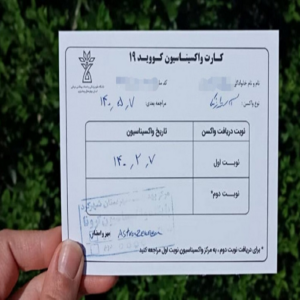 کارت واکسیناسیون کووید ۱۹
نام و نام خانوادگی:
کد ملی
نوع واکسن:
مراجعه بعدی: ۱۴۰۰,۵,۷
نوبت دریافت واکسن
تاریخ واکسیناسیون
نوبت اول
۱۴۰۰,۲,۷
نوبت دوم*
مهر و امضای
AstraZeneca
* برای دریافت نوبت دوم، به مرکز واکسیناسیون نوبت اول مراجعه کنید